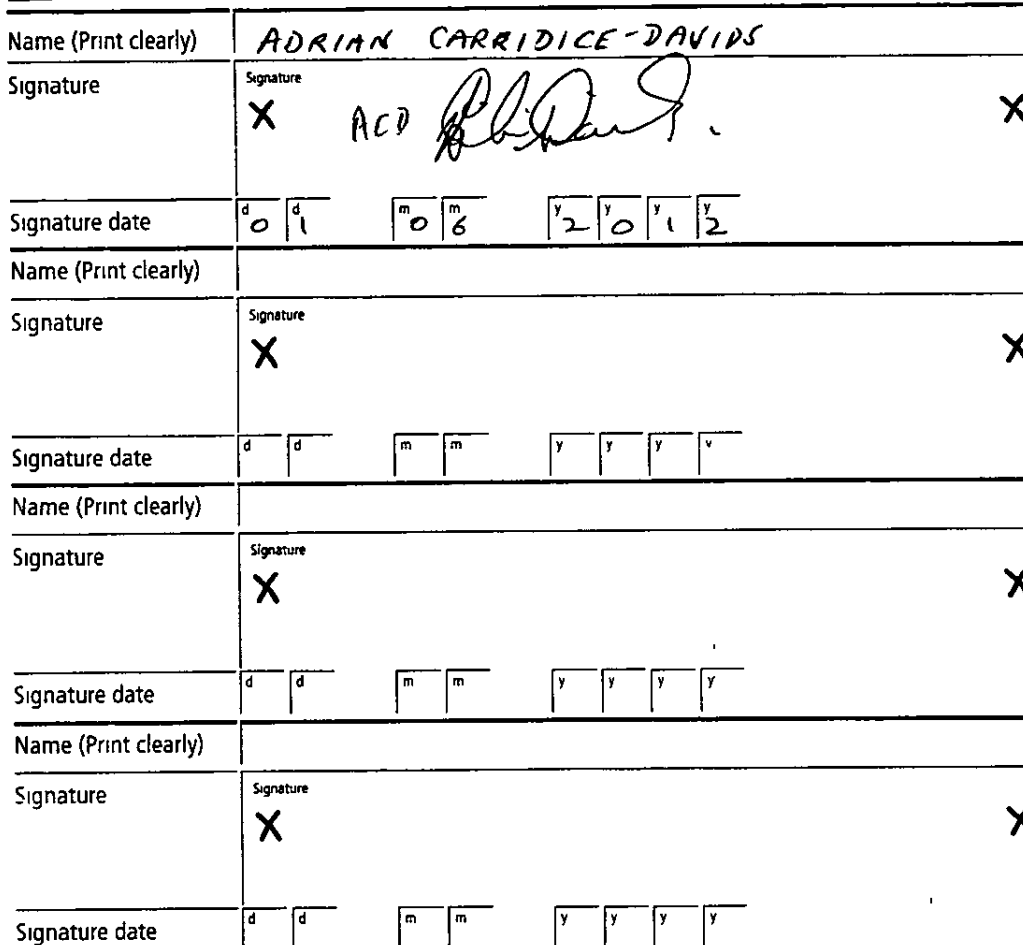 Name (Print clearly) ADRIAN CARRIDICE-DAVIDS
Signature Signature
X ACD X
Signature date d0 d1 m0 m6 y2 y0 y1 y2
Name (Print clearly)
Signature Signature
X X
Signature date d d m m y y y v
Name (Print clearly)
Signature Signature
X X
Signature date d d m m y y y y
Name (Print clearly)
Signature Signature
X X
Signature date d d m m y y y y